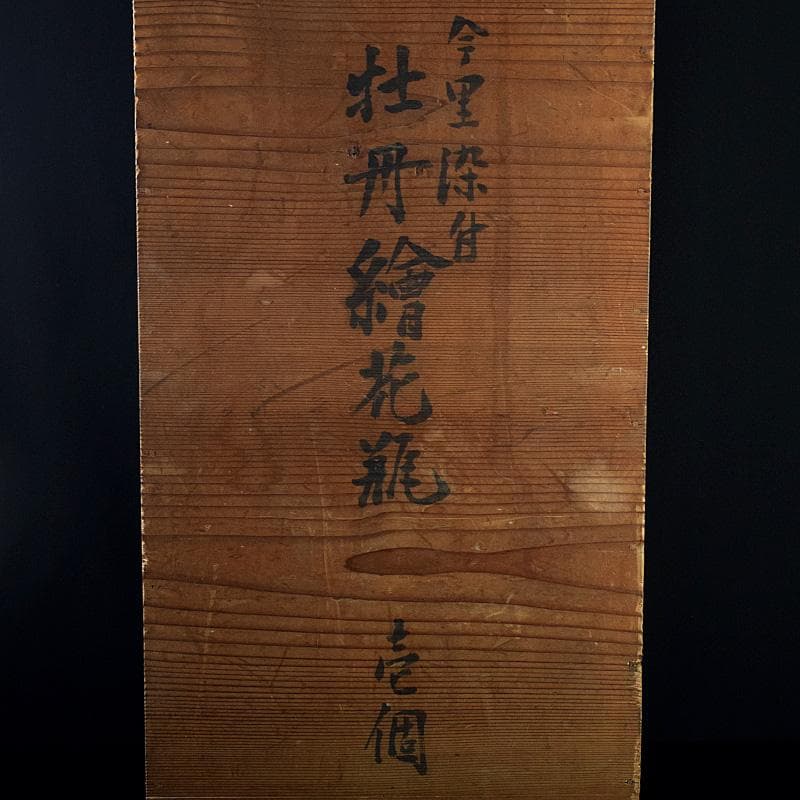 今里染付
牡丹繪花瓶
壱個